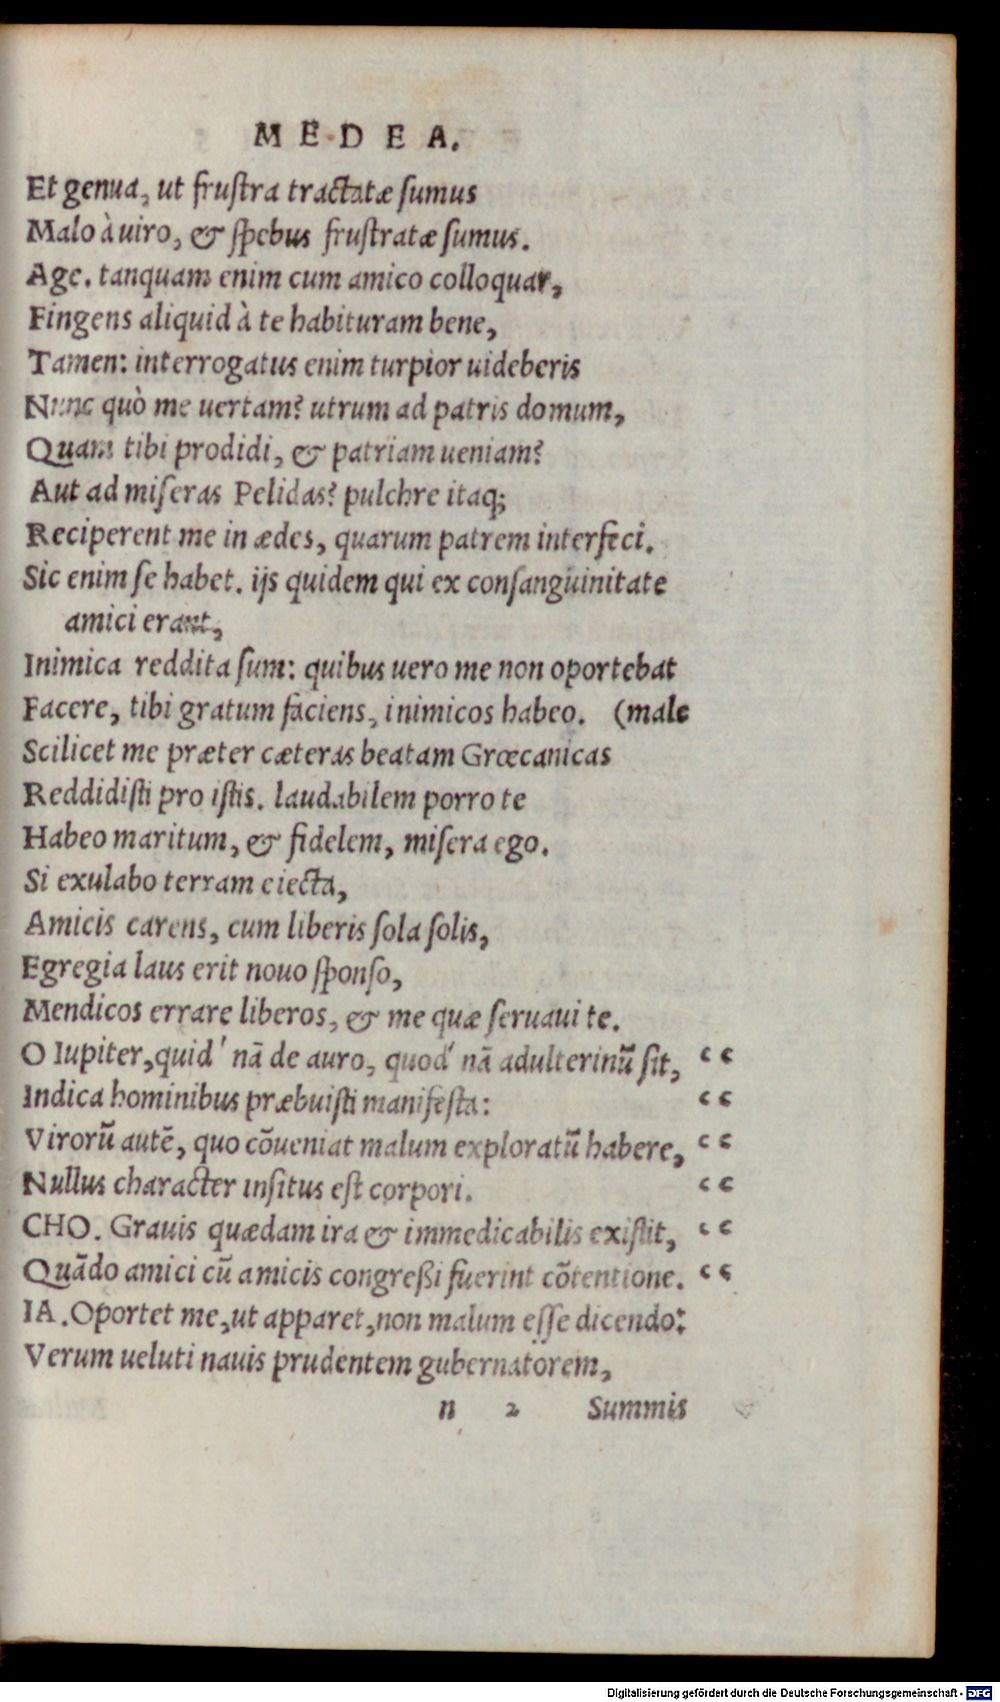 MEDEA.
Et genua, ut frustra tractatæ sumus
Malo à uiro, & spebus frustratæ sumus.
Age. tanquam enim cum amico colloquar,
Fingens aliquid à te habituram bene,
Tamen: interrogatus enim turpior uideberis
Nunc quò me uertam? utrum ad patris domum,
Quam tibi prodidi, & patriam ueniam?
Aut ad miseras Pelidas? pulchre itaq;
Reciperent me in ædes, quarum patrem interfeci.
Sic enim se habet. ijs quidem qui ex consanguinitate
amici erant,
Inimica reddita sum: quibus uero me non oportebat
Facere, tibi gratum faciens, inimicos habeo. (male
Scilicet me præter cæteras beatam Græcanicas
Reddidisti pro istis. laudabilem porro te
Habeo maritum, & fidelem, misera ego.
Si exulabo terram eiecta,
Amicis carens, cum liberis sola solis,
Egregia laus erit nouo sponso,
Mendicos errare liberos, & me quæ seruaui te.
O Iupiter, quid' nā de auro, quod' nā adulterinū sit, “
Indica hominibus præbuisti manifesta: “
Virorū autē, quo cōueniat malum exploratū habere, “
Nullus character insitus est corpori. “
CHO. Grauis quædam ira & immedicabilis existit, “
Quādo amici cū amicis congreßi fuerint cōtentione. “
IA. Oportet me, ut apparet, non malum esse dicendo:
Verum ueluti nauis prudentem gubernatorem,
n 2 Summis
Digitalisierung gefördert durch die Deutsche Forschungsgemeinschaft - DFG